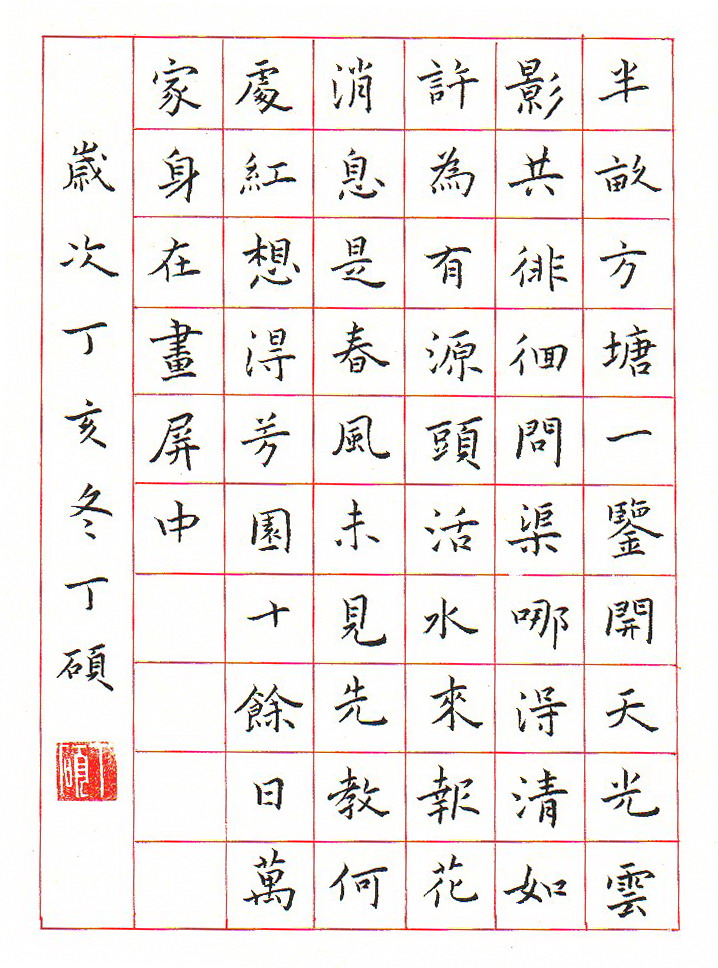 半畝方塘一鑒開天光雲
影共徘徊問渠哪得清如
許為有源頭活水來報花
消息是春風未見先教何
處紅想得芳園十餘日萬
家身在畫屏中
歲次丁亥冬丁碩
丁碩